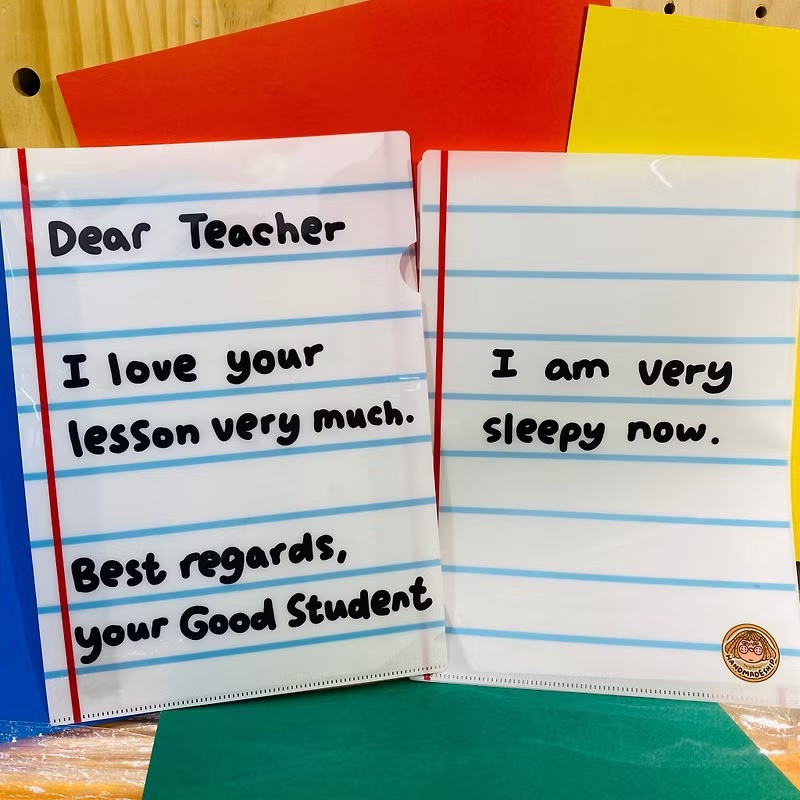 Dear Teacher
I love your
lesson very much.
Best regards,
your Good Student
I am very
sleepy now.
HANDMADESHIP